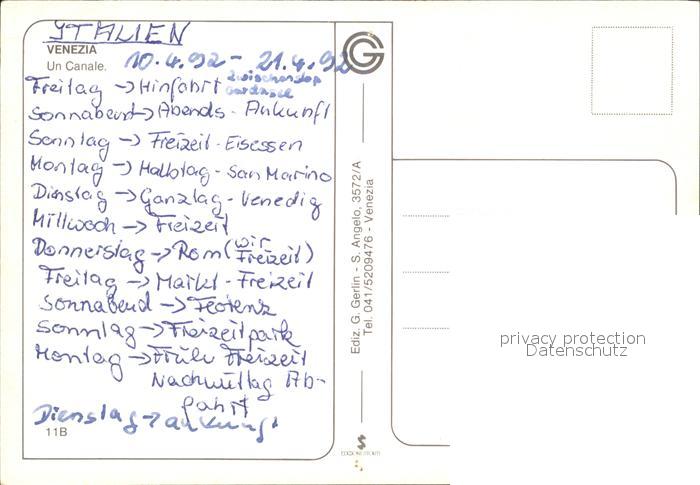 YTALIEN
VENEZIA
Un Canale.
10.4.92 - 21.4.92
Freitag -> Hinfahrt Zwischenstop Gardasee
Sonnabend -> Abends - Ankunft
Sonntag -> Freizeit - Eisessen
Montag -> Halbtag - San Marino
Dienstag -> Ganztag - Venedig
Mittwoch -> Freizeit
Donnerstag -> Rom (wir Freizeit)
Freitag -> Markt - Freizeit
Sonnabend -> Florenz
Sonntag -> Freizeitpark
Montag -> Früh Freizeit
Nachmittag Ab-
fahrt
Dienstag -> Ankunft
11B
Ediz. G. Gerlin - S. Angelo, 3572/A
Tel. 041/5209476 - Venezia
privacy protection
Datenschutz